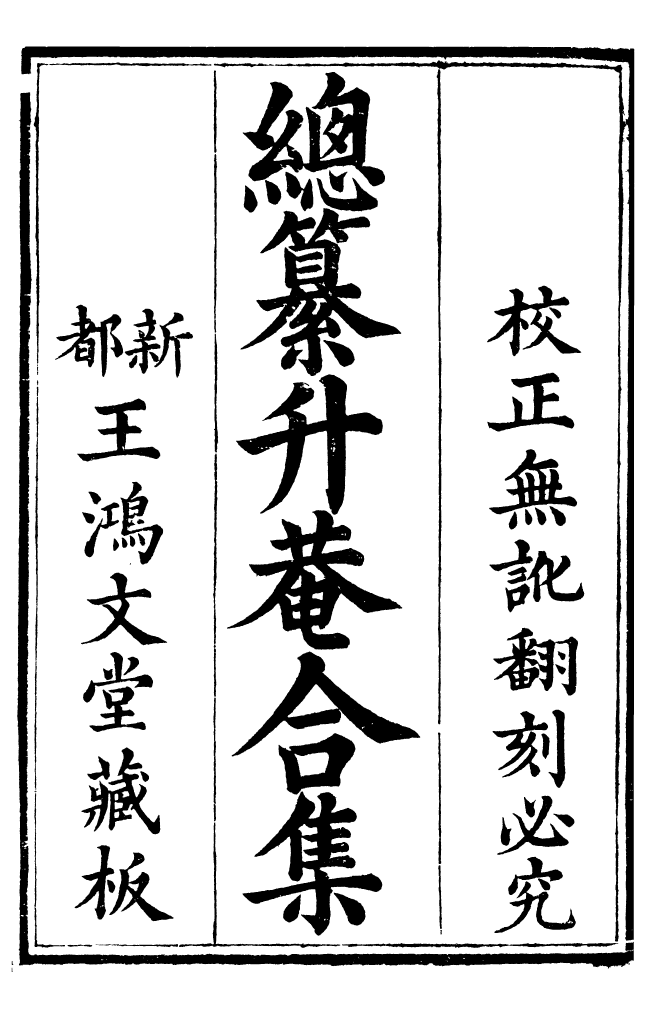 校正無訛翻刻必究
總纂升菴合集
新都王鴻文堂藏板